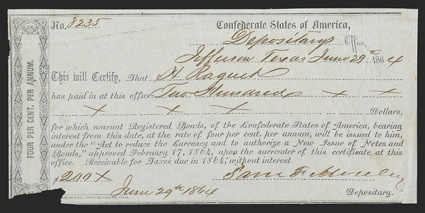 No. 8235 Confederate States of America,
Depositary's Office,
Jefferson Texas June 29th 1864
This will Certify, That H Raguet
has paid in at this office Two Hundred x x
x x x x Dollars,
for which amount Registered Bonds, of the Confederate States of America, bearing
interest from this date, at the rate of four per cent. per annum, will be issued to him,
under the "Act to reduce the Currency and to authorize a New Issue of Notes and
Bonds," approved February 17, 1864, upon the surrender of this certificate at this
office. Receivable for Taxes due in 1864, without interest.
$200 x
June 29th 1864
Depositary.
FOUR PER CENT. PER ANNUM.